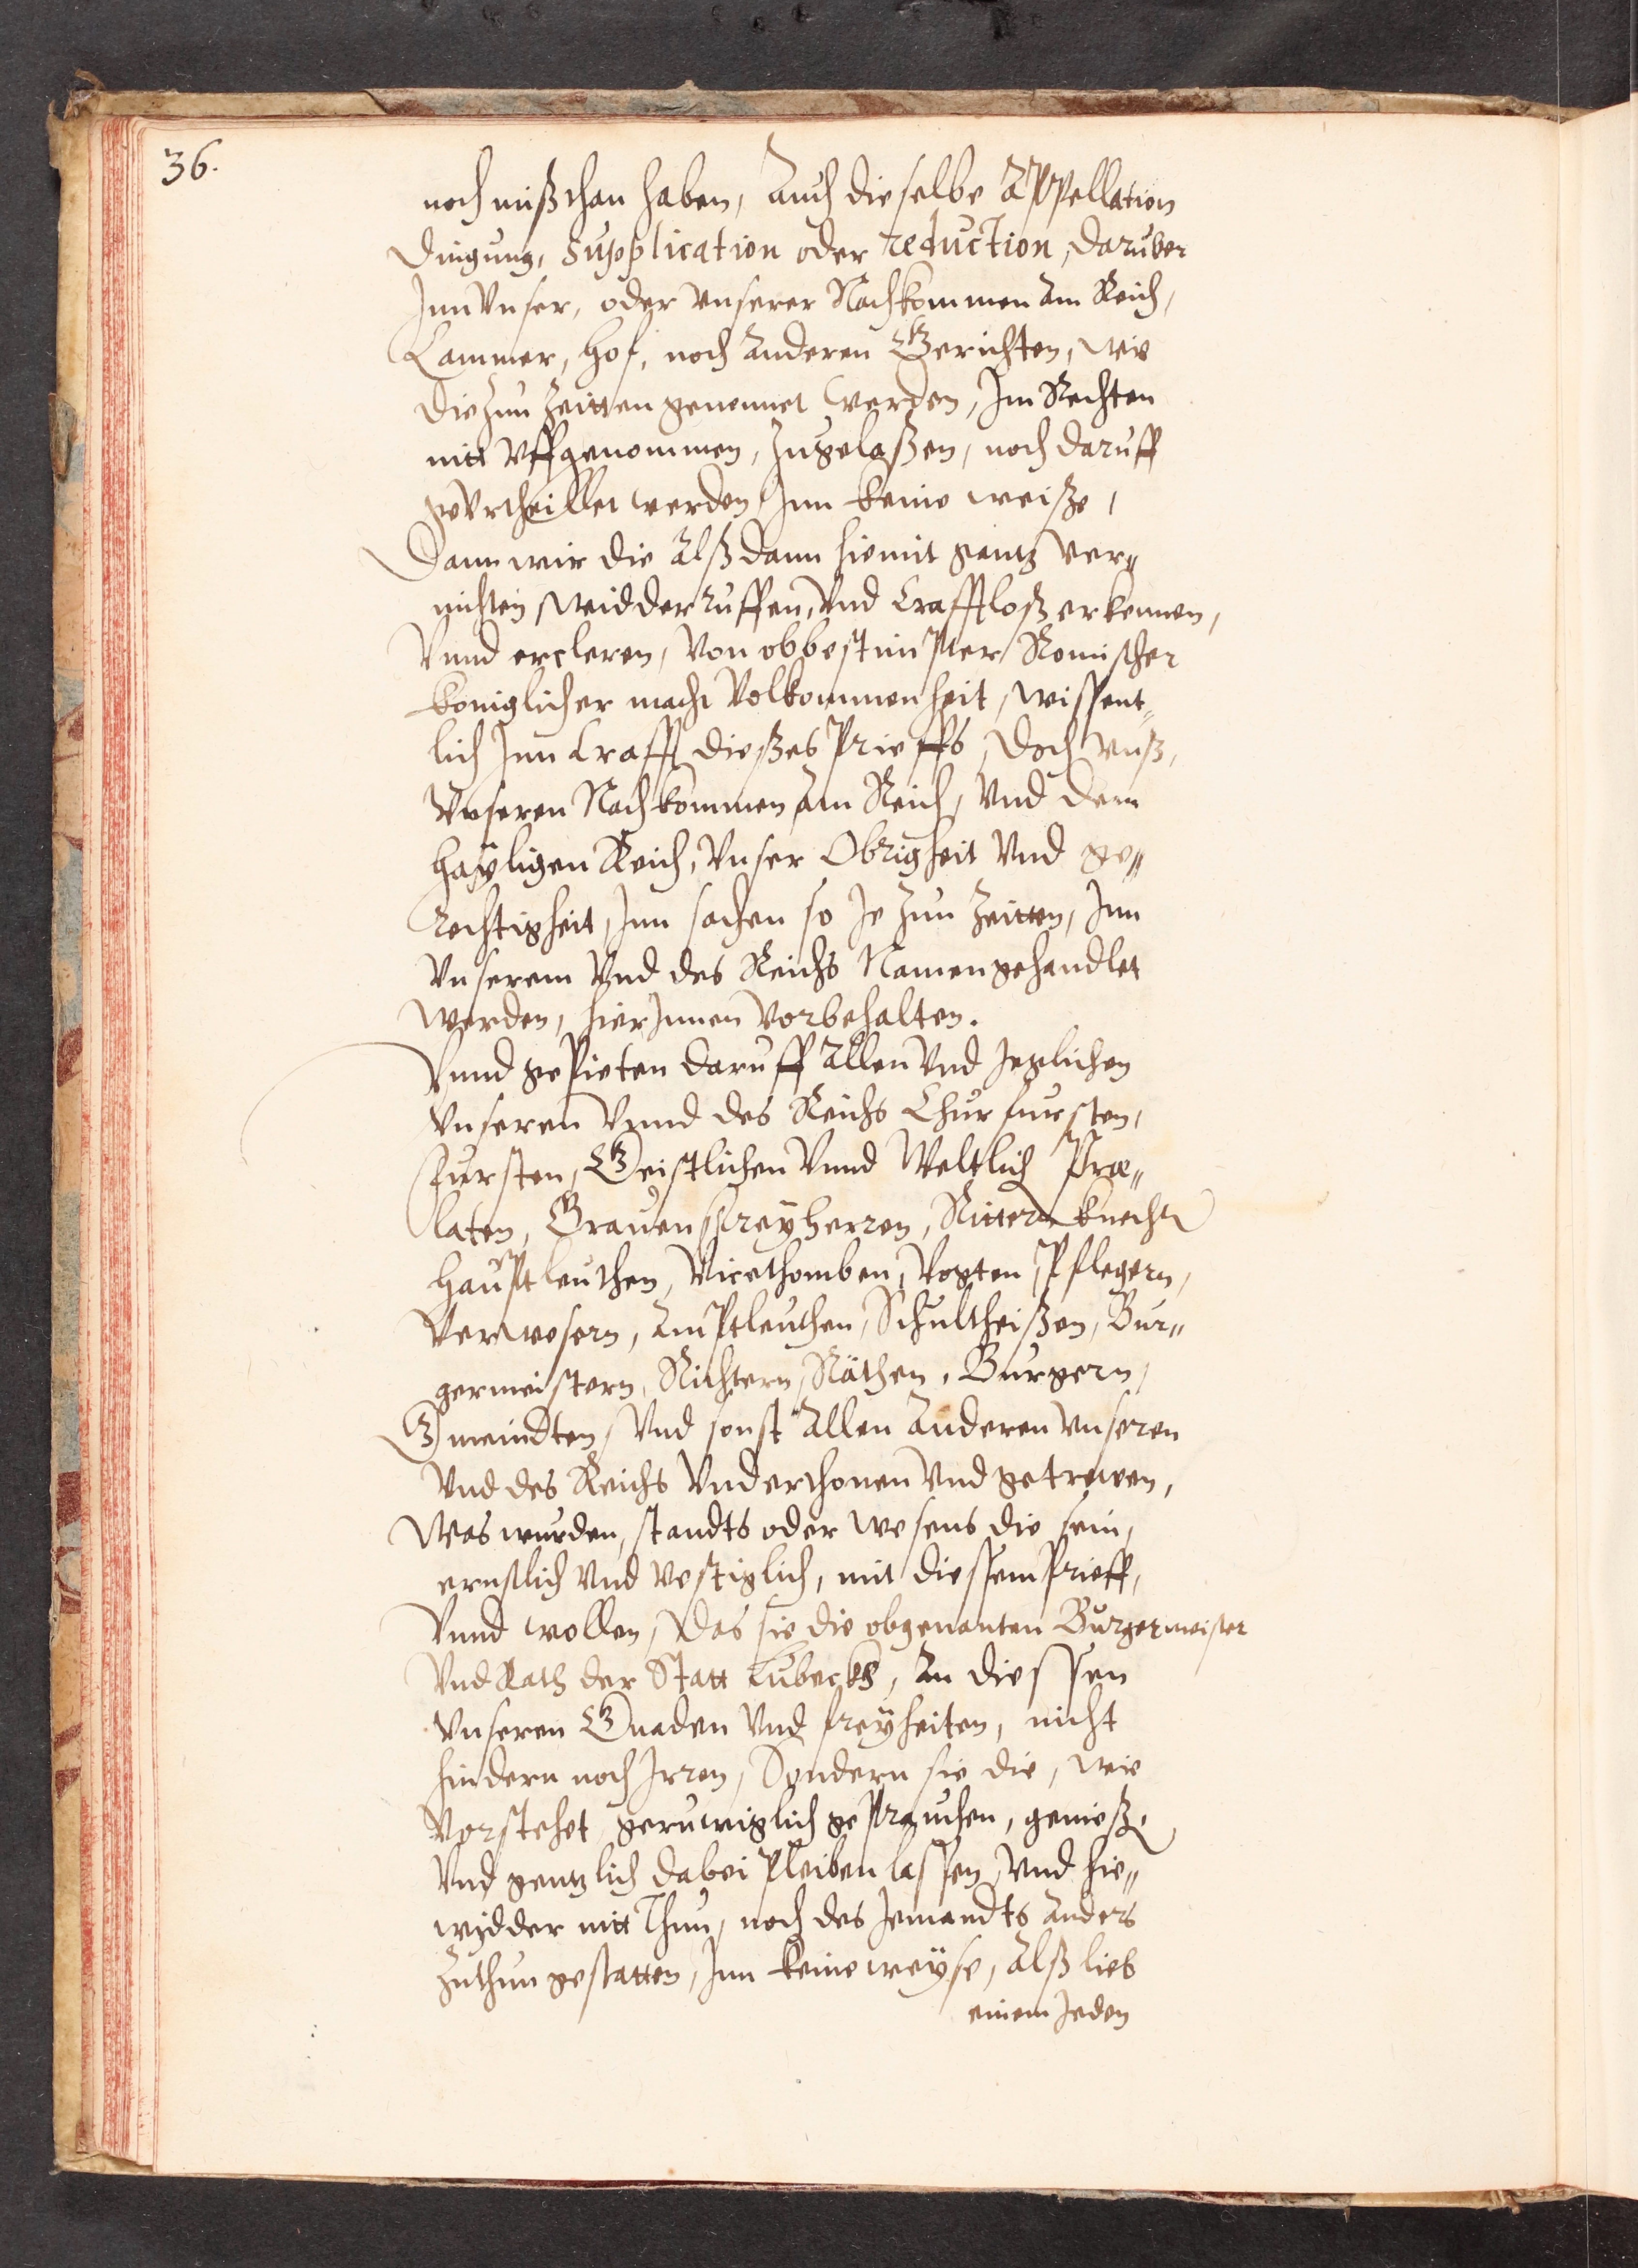 36.
noch mißthan haben, Auch dieselbe Appellation
Dingung, Supplication oder reduction, daruber
Inn Vnser, oder vnserer Nachkommen am Reich,
Cammer, Hof, noch anderen Gerichten, wie
die zun Zeitten genennet werden, Im Rechten
nitt vffgenommen, zugelaßen, noch daruff
gevrtheillet werden Inn keine weiße,
Dann wir die Alß dann hiemit gantz ver„
nichten, widderruffen, Vnd Crafftloß erkennen,
Vnnd ercleren, Von obbestimpter Romischer
königlicher macht Volkommenheit, wissent„
lich Inn Crafft dießes Prieffs, Doch vnß,
Vnseren Nachkommen am Reich, Vnd dem
hayligen Reich, Vnser Obrigkeit Vnd ge„
rechtigheit, Inn sachen so Je zun Zeitten, Inn
Vnserem Vnd des Reichs Namen gehandlet
werden, hierinnen Vorbehalten.
Vnnd gepieten daruff Allen Vnd Jeglichen
Vnseren Vnnd des Reichs Churfursten,
Fursten, Geistlichen Vnnd Weltlich Præ„
laten, Grauen Freyherren, Rittern knecht
Hauptleuthen, Vicethomben, Vogten, Pflegern,
Verwesern, Amptleuthen, Schultheißen, Bur„
germeistern, Richtern, Räthen, Burgern,
Gmeindten, Vnd sonst Allen Anderen Vnseren
Vnd des Reichs Vnderthonen Vnd getrewen,
Was wurden, standts oder wesens die sein,
ernstlich Vnd Vestiglich, mit diessem Prieff,
Vnnd wollen, Das sie die obgenanten Burgermeister
Vnd Rath der Statt Lubeckh, An diessen
Vnseren Gnaden Vnd freyheiten, nicht
hindern noch Irren, Sondern sie die, wie
Vorstehet geruwiglich geprauchen, genieß,
Vnd gentzlich dabei pleiben lassen, Vnd hie„
widder nitt Thun, noch des Jemandts Anders
Zuthun gestatten, Inn keine weyse, Alß lieb
einem Jeden